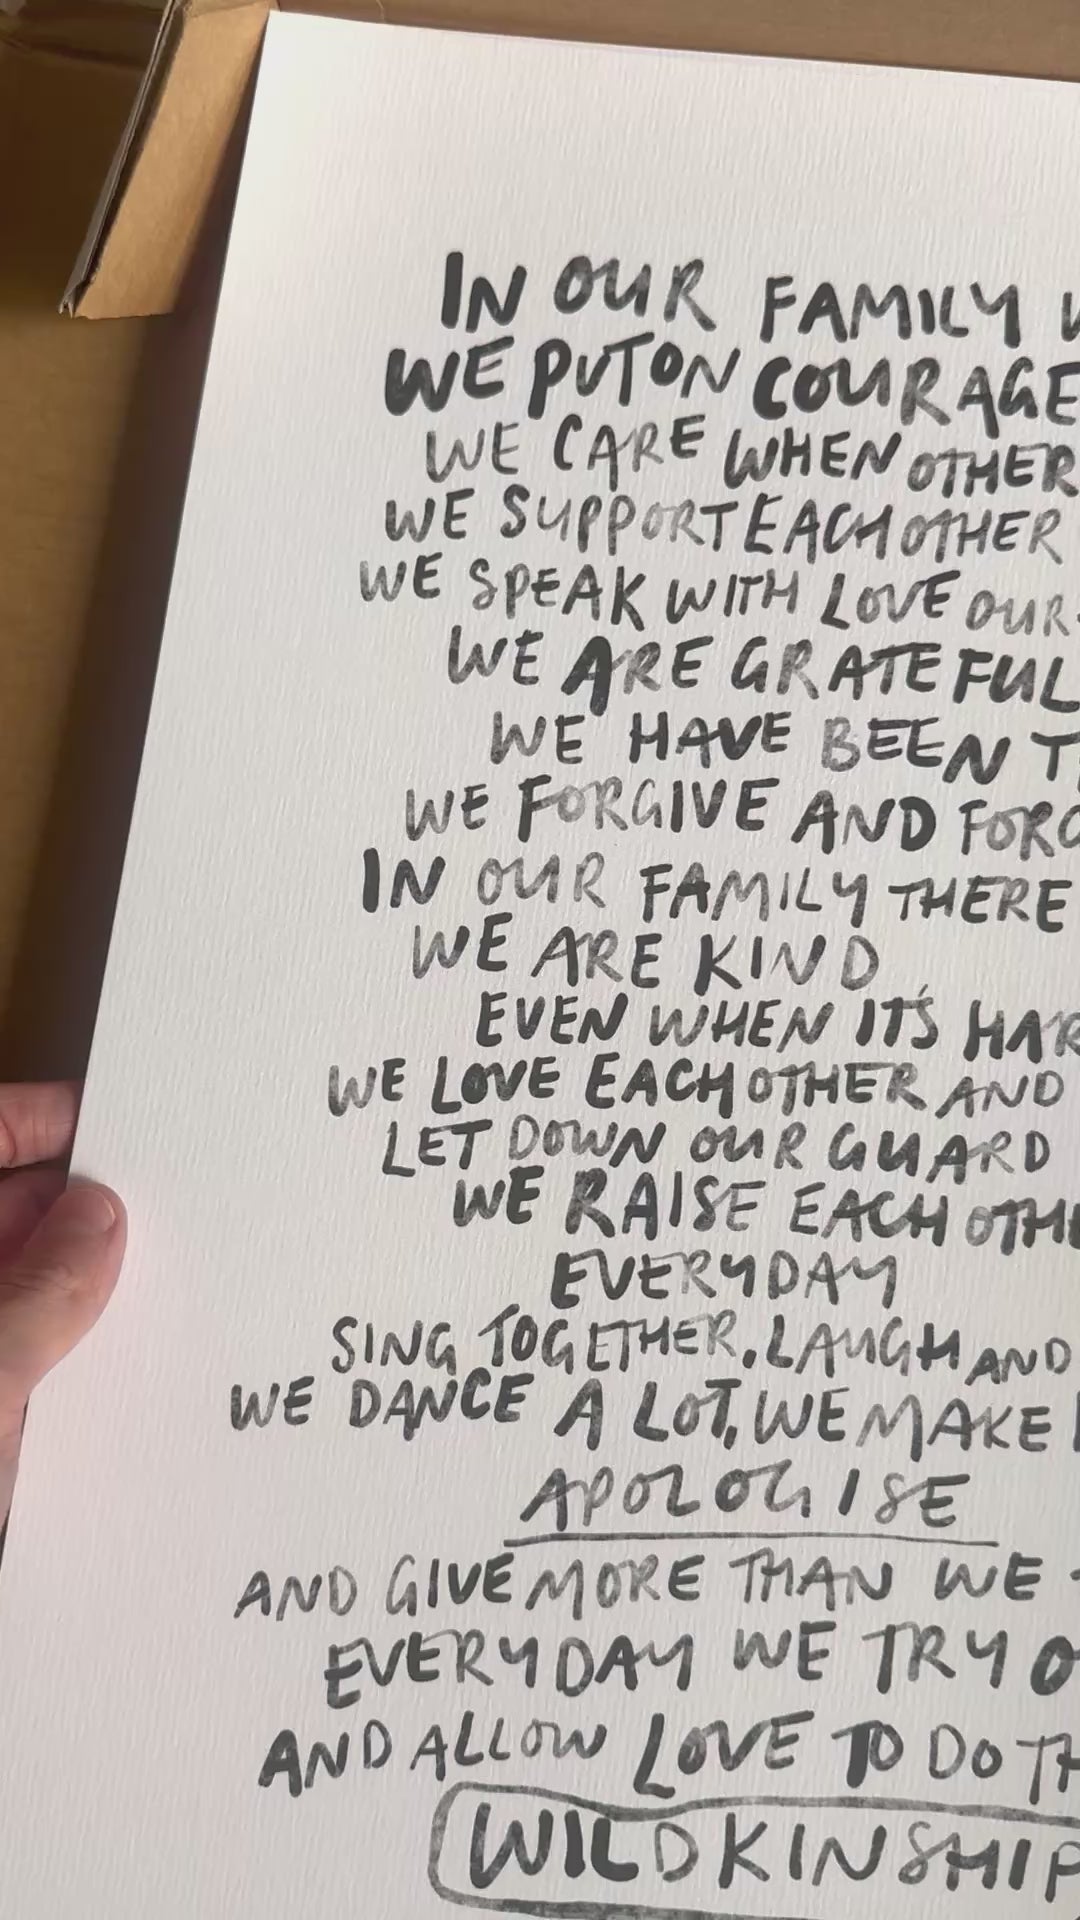 IN OUR FAMILY
WE PUT ON COURAGE
WE CARE WHEN OTHER
WE SUPPORT EACH OTHER
WE SPEAK WITH LOVE OUR
WE ARE GRATEFUL
WE HAVE BEEN
WE FORGIVE AND
IN OUR FAMILY THERE
WE ARE KIND
EVEN WHEN IT'S
WE LOVE EACH OTHER AND
LET DOWN OUR GUARD
WE RAISE EACH
EVERYDAY
SING TOGETHER. LAUGH AND
WE DANCE A LOT, WE MAKE
APOLOGISE
AND GIVE MORE THAN WE
EVERYDAY WE TRY
AND ALLOW LOVE TO DO
WILDKINSHIP